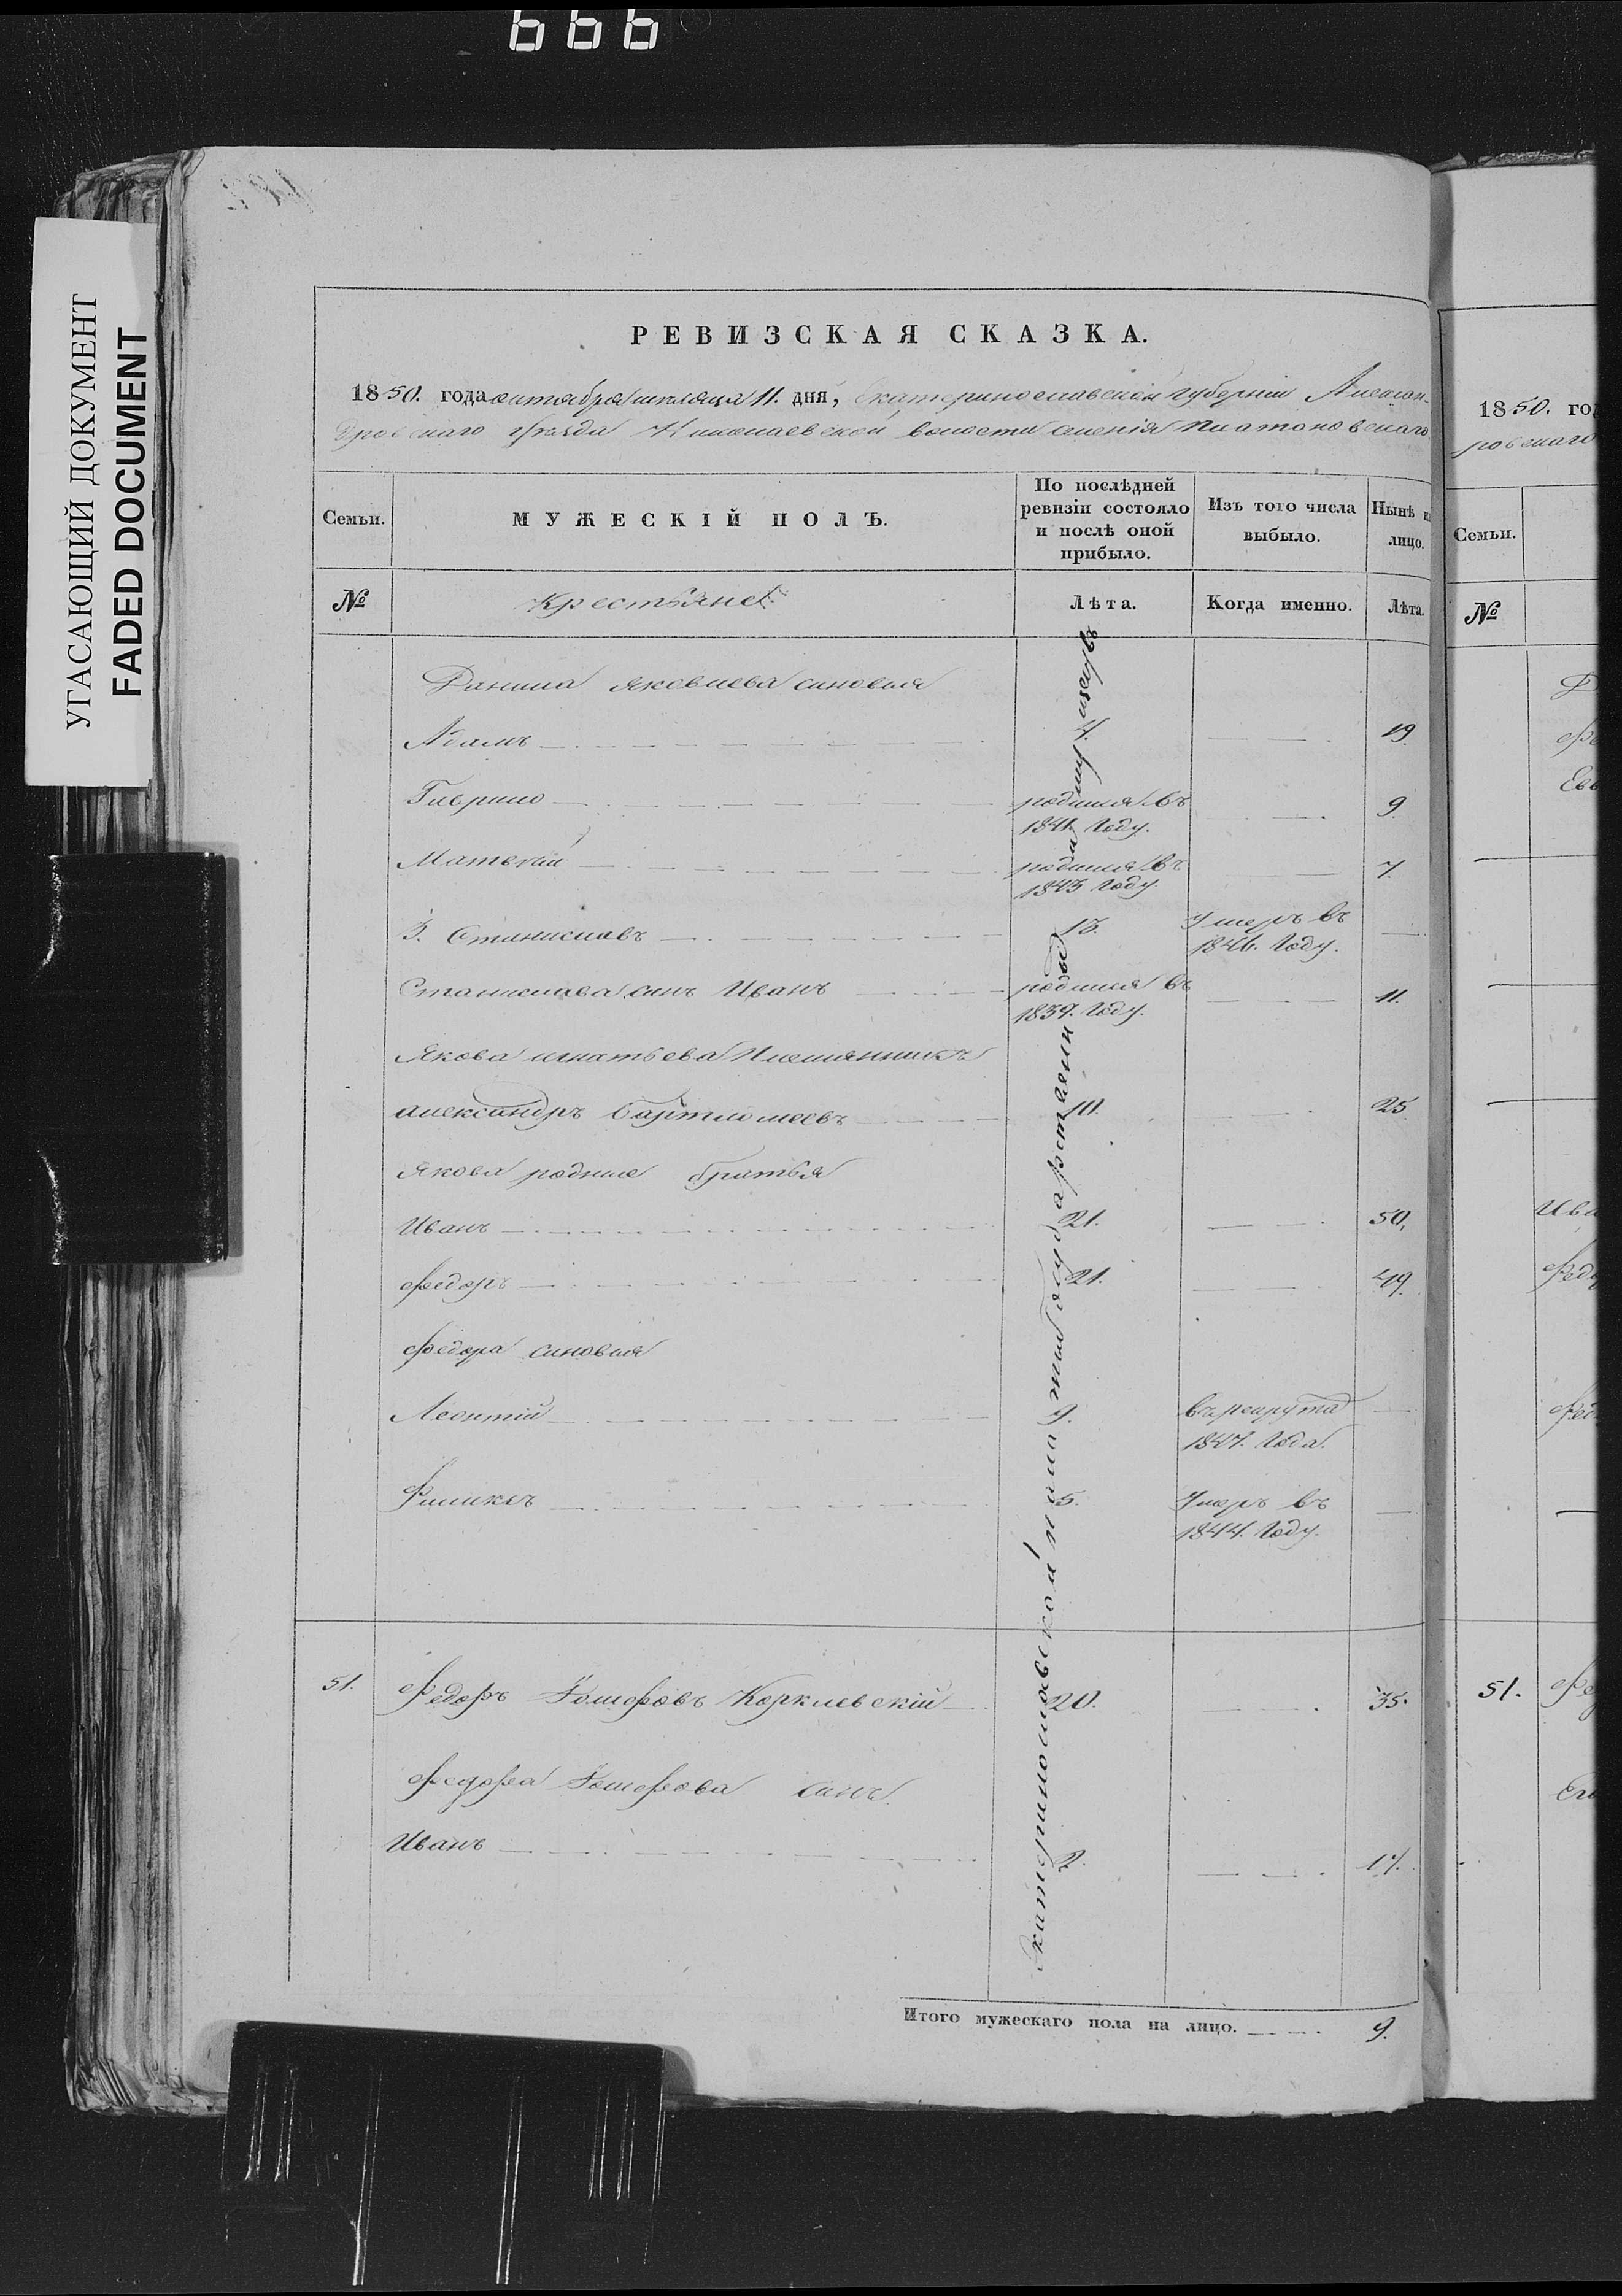 666
УГАСАЮЩИЙ ДОКУМЕНТ
FADED DOCUMENT
РЕВИЗСКАЯ СКАЗКА.
1850. года октября месяца 11. дня, Екатеринославской губернии Алексан-
дровскаго уезда Николаевской волости селения Платоновскаго
Семьи.
МУЖЕСКІЙ ПОЛЪ.
По послѣдней
ревизіи состояло
и послѣ оной
прибыло.
Изъ того числа
выбыло.
Нынѣ
лицо.
№
Крестьяне
Лѣта.
Когда именно.
Лѣта.
Данила Яковлева сыновья
Адамъ 4. 19
Гаврило родился въ 9
1841. Году.
Матвѣй родился въ 7.
1843 Году.
3. Станиславъ 13. Умеръ въ
1846. Году.
Станислава сынъ Иванъ родился въ 11.
1839. Году.
Якова Игнатьева Племянникъ
Александръ Вартломеевъ 10. 25
Якова родные братья
Иванъ 21. 50.
Федоръ 21. 49.
Федора сыновья
Леонтій 9. въ рекрута
1847. Года.
Филикъ 5. Умеръ въ
1844. Году.
51. Федоръ Коркиевскій 20. 35.
Федора сынъ
Иванъ 2. 17.
Итого мужескаго пола на лицо. 9.
Екатеринославской палаты государственныхъ имуществъ
1850. го
ровскаго
Семьи.
№
Ива
Федо
51.